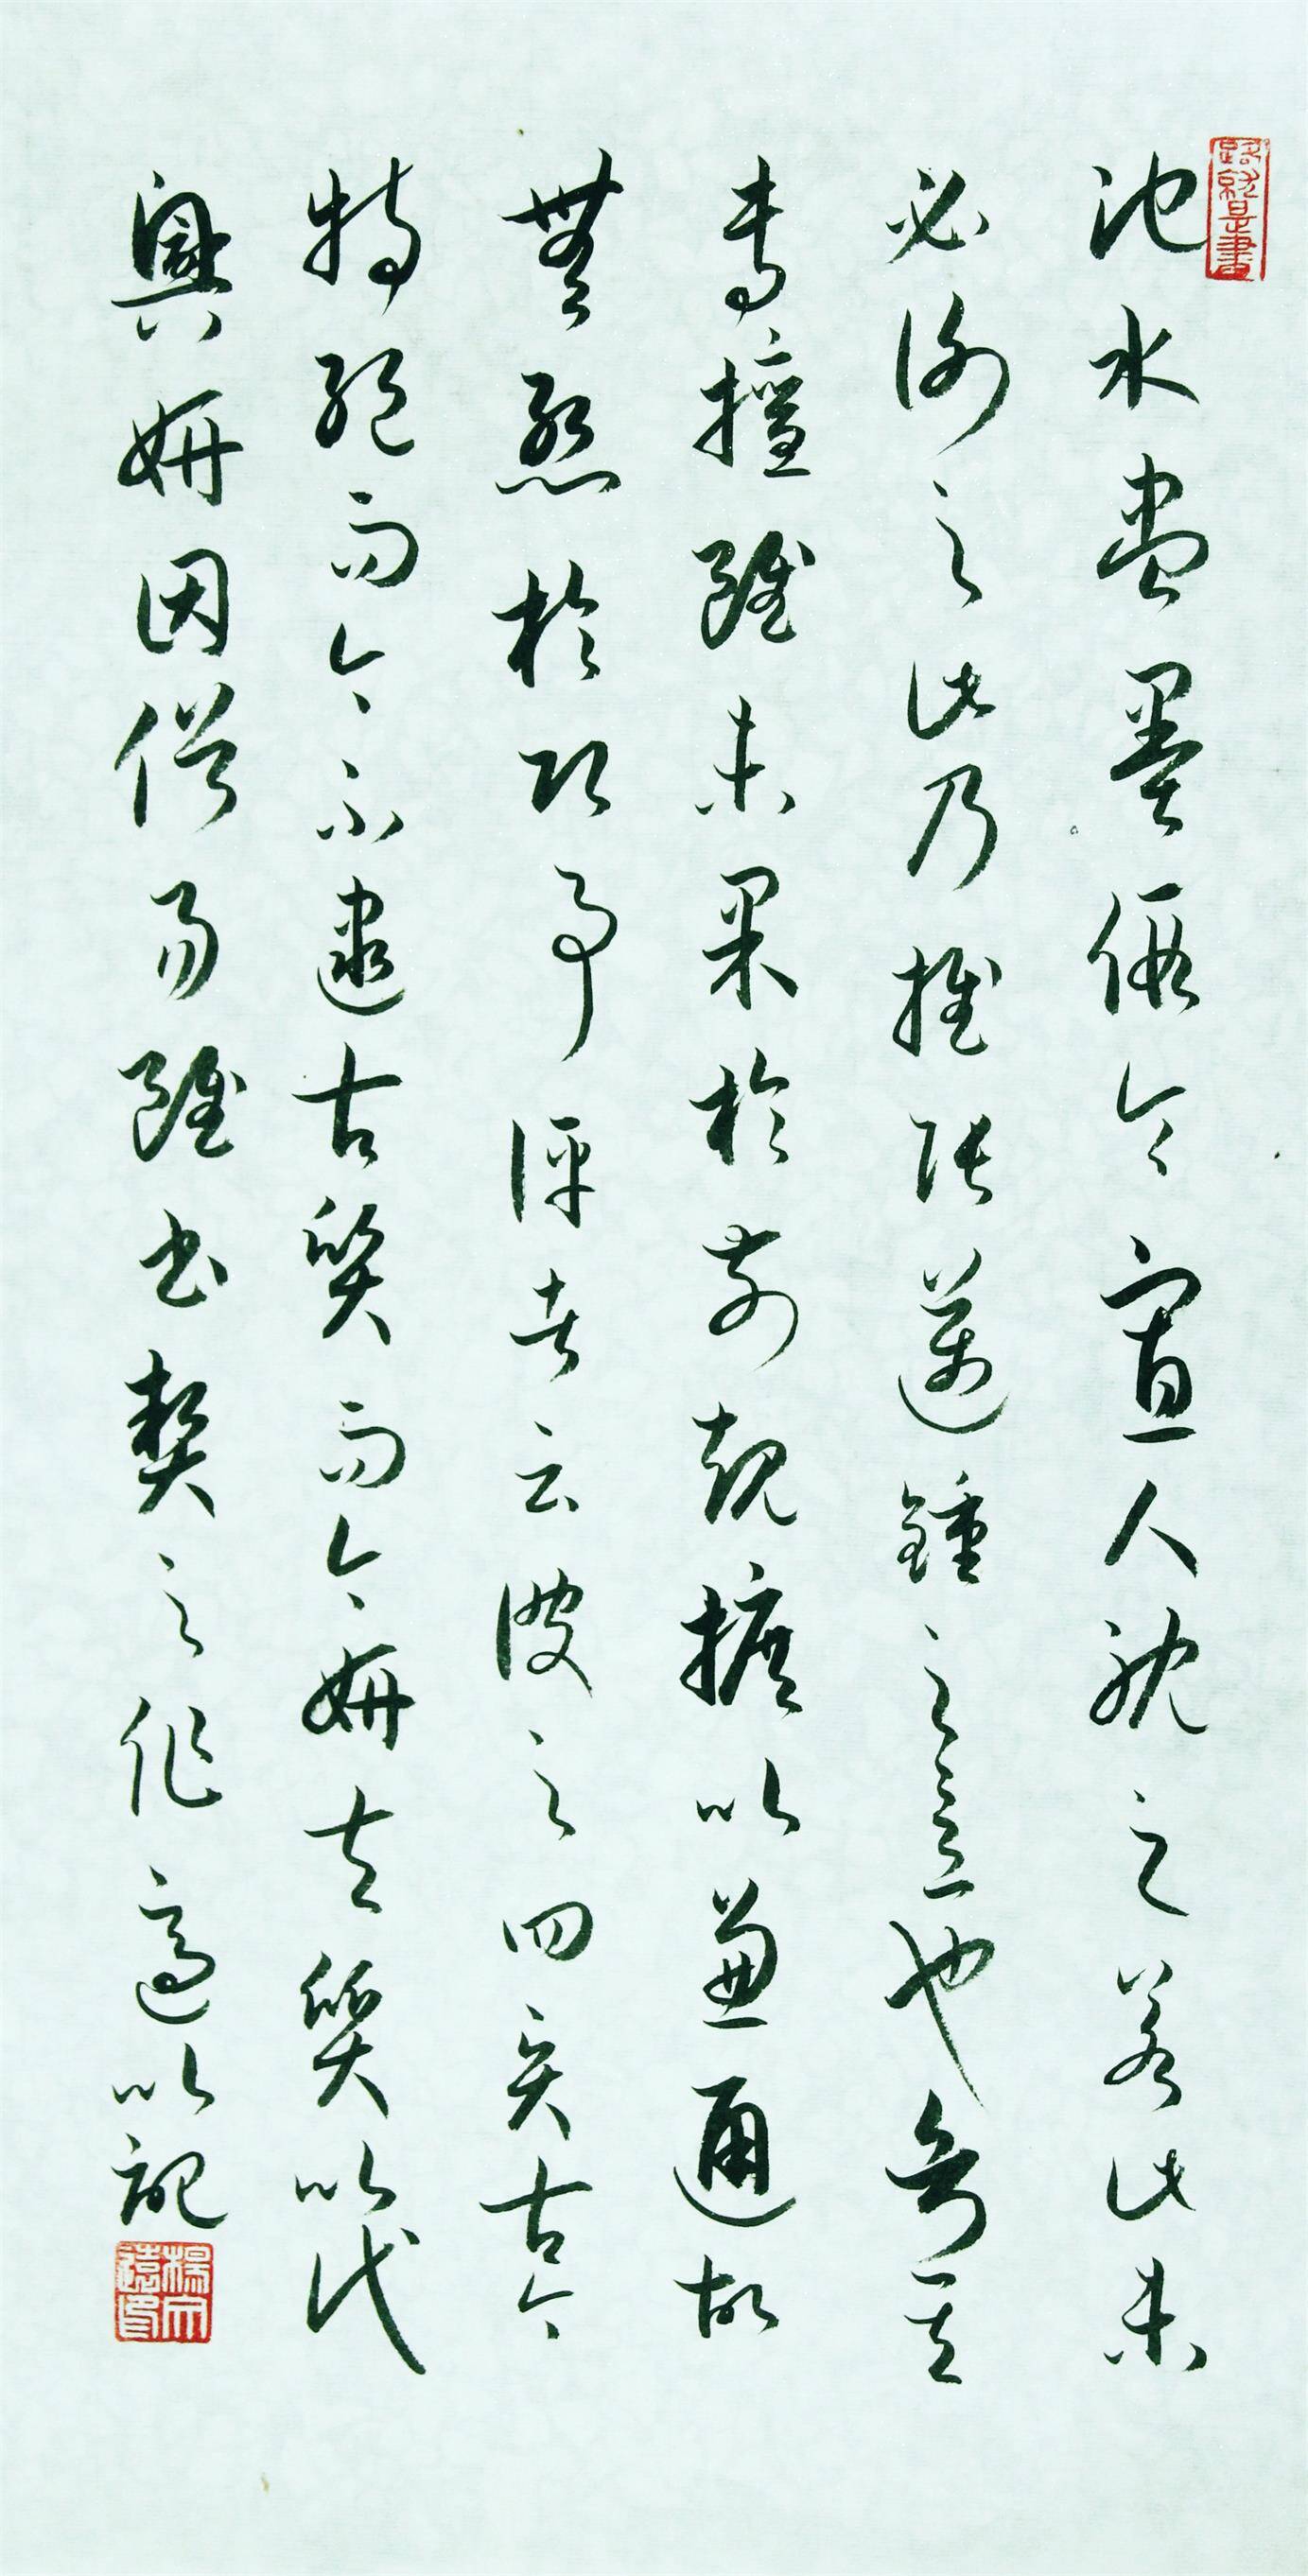 路就是書
池水盡墨假令寡人耽之若此未
必謝之此乃推張邁鍾之意也考其
專擅雖未果於前規摭以兼通故
無慙於即事評者云彼之四賢古今
特絕而今不逮古質而今妍夫質以代
興妍因俗易雖書契之作適以記